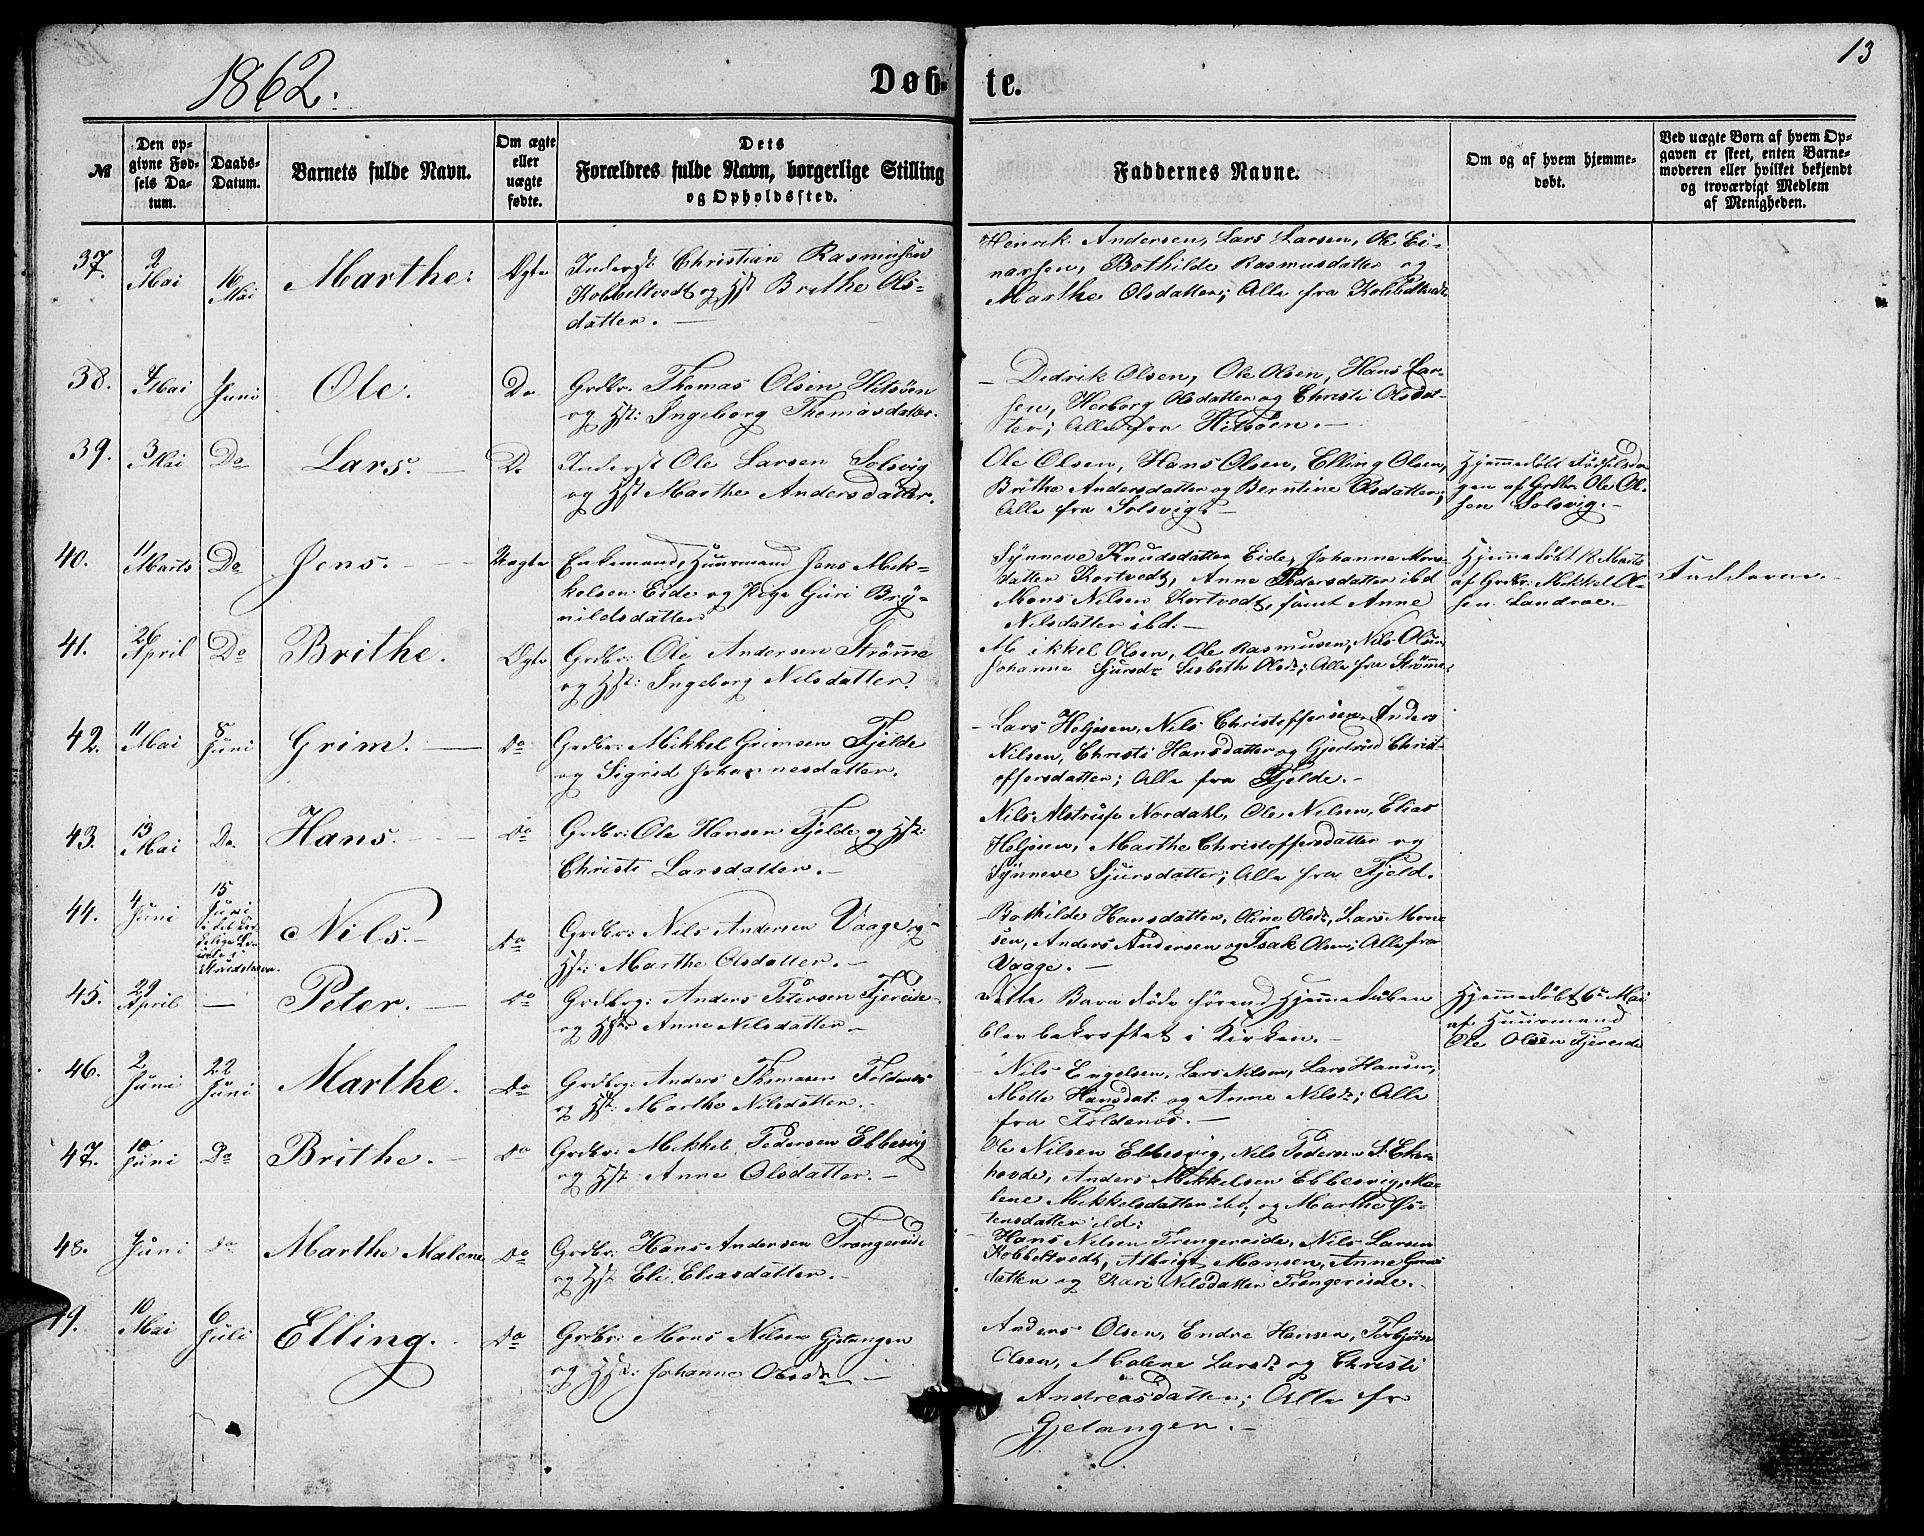 1862.
Døb-
te.
13
№
Den op-
givne Fød-
sels Da-
tum.
Daabs-
Datum.
Barnets fulde Navn.
Om ægte
eller
uægte
fødte.
Dets
Forældres fulde Navn, borgerlige Stilling
og Opholdssted.
Faddernes Navne.
Om og af hvem hjemme-
døbt.
Ved uægte Børn af hvem Op-
gaven er skeet, enten Barne-
moderen eller hvilket bekjendt
og troværdigt Medlem
af Menigheden.
37.
2
Mai
Mai
Marthe.
Ægte
Inderst Christian Rasmussen
Kobbeltvedt og Hst Brithe Ols-
datter. —
Henrik Andersen, Lars Larsen, Ole Ei-
narsen, Bothilde Rasmusdatter og
Marthe Olsdatter; Alle fra Kobbeltvedt
38.
4
Mai
1
Juni
Ole.
Do
Grdbr. Thomas Olsen Hitsøen
og Hst: Ingeborg Thomasdatter.
Didrik Olsen, Ole Olsen, Hans Lar-
sen, Herborg Olsdatter og Christi Olsdat-
ter; Alle fra Hitsøen. —
39.
3
Mai
Do
Lars. —
Do
Inderst Ole Larsen Solsvig
og Hst Marthe Andersdatter.
Ole Olsen, Hans Olsen, Elling Olsen,
Brithe Andersdatter og Berntine Olsdatter;
Alle fra Solsvig. —
Hjemmedøbt Fødselsda-
gen af Grdbr. Ole Ol-
sen Solsvig. —
40.
11
Marts
Do
Jens. —
Uægte
Enkemand, Huurmand Jens Mik-
kelsen Eide og Pige Guri Bry-
nildsdatter
Synneve Knudsdatter Eide, Johanne Mons-
datter Kortvedt, Anne Pedersdatter ibd
Mons Nilsen Kortvedt, samt Anne
Nilsdatter ibd. —
Hjemmedøbt 18 Marts
af Grdbr: Mikkel Ol-
sen Landroe. —
Fadderne. —
41.
26
April
Do
Brithe.
Ægte
Grdbr: Ole Andersen Strømme
og Hst: Ingeborg Nilsdatter.
Mikkel Olsen, Ole Rasmusen, Nils Olsen,
Johanne Sjursdr Lisbeth Olsdr; Alle fra Strømme
42.
11
Mai
8
Juni
Grim. —
Do
Grdbr: Mikkel Grimsen Fjelde
og Sigrid Johannesdatter.
Lars Heljesen, Nils Christoffersen, Anders
Nilsen, Christi Hansdatter og Gjertrud Christ-
offersdatter; Alle fra Fjelde. —
43.
13
Mai
Do.
Hans. —
Do
Grdbr: Ole Hansen Fjelde og Hst:
Christi Larsdatter. —
Nils Alstrup Nordahl, Ole Nilsen, Elias
Heljesen, Marthe Christoffersdatter og
Synneve Sjursdatter; Alle fra Fjeld.
44.
4
Juni
15
Juni
Nils. —
Do
Grdbr: Nils Andersen Vaage og
Hst: Marthe Olsdatter. —
Bothilde Hansdatter, Oline Olsdr, Lars Mon-
sen, Anders Andersen og Isak Olsen; Alle fra
Vaage. —
45.
29
April
—
Peter. —
Do
Grdbrg: Anders Petersen Tjereide
og Hst: Anne Nilsdatter —
Dette Barn døde førend Hjemmedaaben
blev bekræftet i Kirken. —
Hjemmedøbt 6te Mai
af Huurmand
Ole Olsen Tjereide
46.
2
Juni
22
Juni
Marthe.
Do
Grdbrg: Anders Thomasen Foldenes
og Hst: Marthe Nilsdatter. —
Nils Engelsen, Lars Nilsen, Lars Hansen,
Mette Hansdat: og Anne Nilsdr; Alle
fra Foldenes. —
47.
10
Juni
Do
Brithe. —
Do
Grdbr: Mikkel Pedersen Ebbesvig
og Hst Anne Olsdatter. —
Ole Nilsen Ebbesvig, Nils Pedersen St Eken-
hovde, Anders Mikkelsen Ebbesvig, Ma-
lene Mikkelsdatter ibd, og Marthe Øs-
tensdatter ibd:
48.
4
Juni
Do
Marthe Malene
Do
Grdbr: Hans Andersen Trengereide
og Hst Eli Eliasdatter. —
Hans Nilsen Trengereide, Nils Larsen
Kobbeltvedt, Albrigt Monsen, Anne
datter og Kari Nilsdatter Trengereide.
49.
10
Mai
6
Juli
Elling. —
Do
Grdbr: Mons Nilsen Gjetangen
og Hst: Johanne Olsdr —
Anders Olsen, Endre Hansen, Torbjørn
Olsen, Malene Larsdr og Christi
Andreasdatter; Alle fr
Gjetangen. —